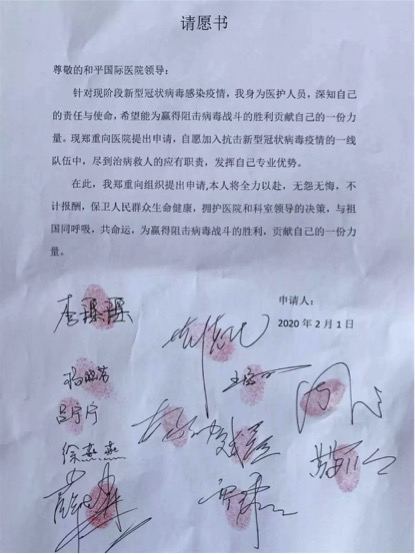 请愿书
尊敬的和平国际医院领导：
针对现阶段新型冠状病毒感染疫情，我身为医护人员，深知自己
的责任与使命，希望能为赢得阻击病毒战斗的胜利贡献自己的一份力
量。现郑重向医院提出申请，自愿加入抗击新型冠状病毒疫情的一线
队伍中，尽到治病救人的应有职责，发挥自己专业优势。
在此，我郑重向组织提出申请,本人将全力以赴，无怨无悔，不
计报酬，保卫人民群众生命健康，拥护医院和科室领导的决策，与祖
国同呼吸，共命运，为赢得阻击病毒战斗的胜利，贡献自己的一份力
量。
申请人：
2020 年 2 月 1 日
吕宁宁
徐燕燕